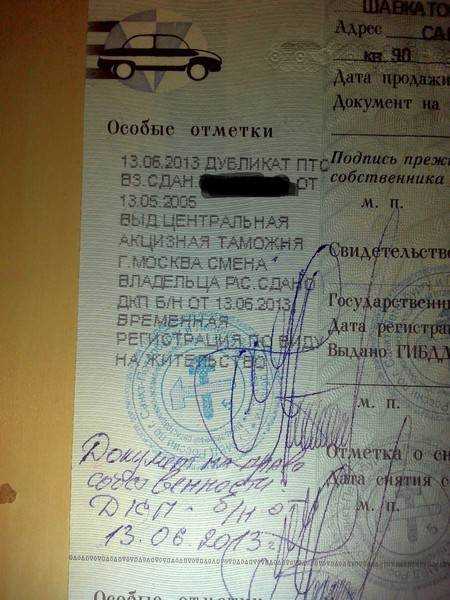 Особые отметки
13.06.2013 ДУБЛИКАТ ПТС
ВЗ.СДАН ОТ
13.05.2005
ВЫД.ЦЕНТРАЛЬНАЯ
АКЦИЗНАЯ ТАМОЖНЯ
Г.МОСКВА СМЕНА
ВЛАДЕЛЬЦА Р/С.СДАНО
ДКП Б/Н ОТ 13.06.2013
ВРЕМЕННАЯ
РЕГИСТРАЦИЯ ПО ВИДУ
НА ЖИТЕЛЬСТВО
Документ на право
собственности:
ДКП - б/н от
13.06.2013г
Особые отметки
ШАВКАТО
Адрес САН
кв 90
Дата продажи
Документ на
Подпись преж
собственника
м. п.
Свидетельство
Государственн
Дата регистра
Выдано ГИБДД
м. п.
Отметка о сн
Дата снятия с
м. п.